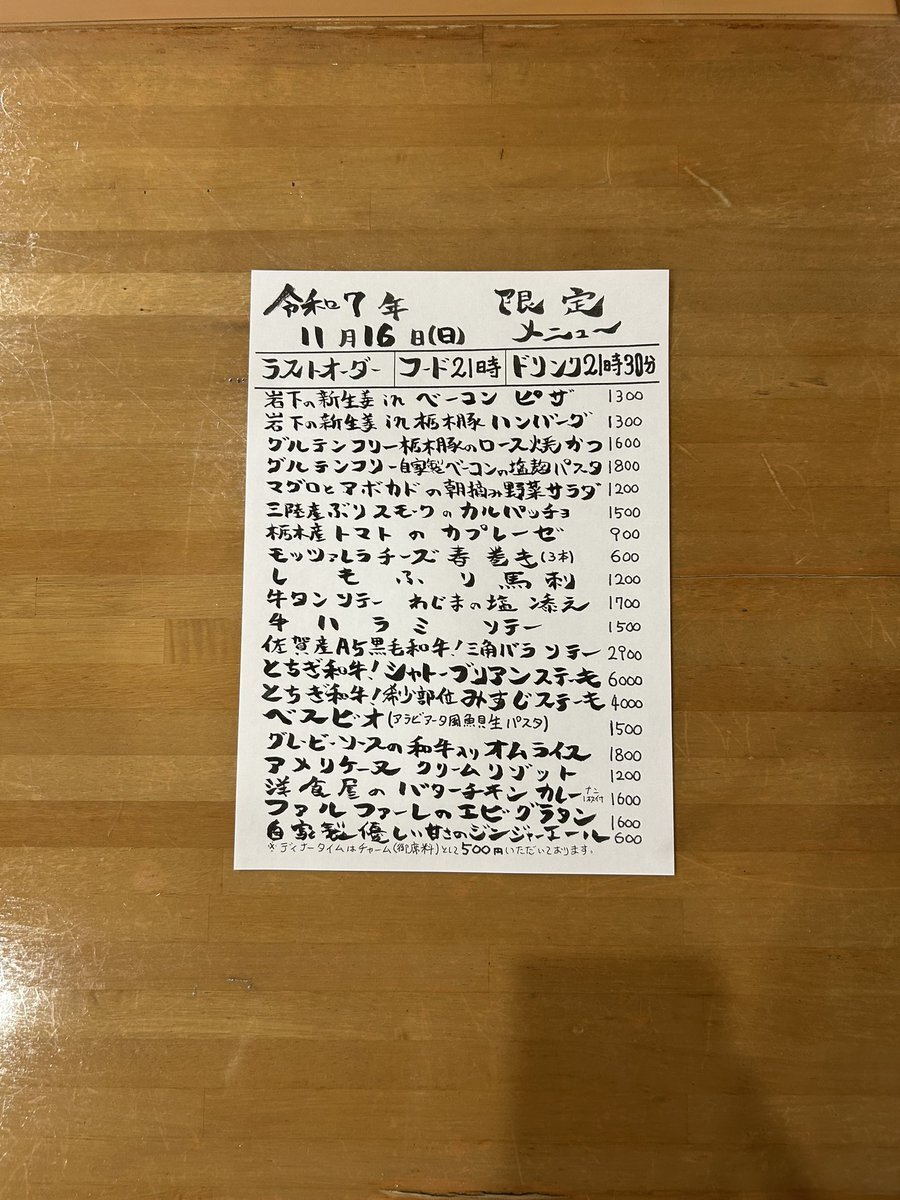 令和7年 限定
11月16日(日) メニュー
ラストオーダー フード21時 ドリンク21時30分
岩下の新生姜in ベーコン ピザ 1300
岩下の新生姜in 栃木豚 ハンバーグ 1300
グルテンフリー栃木豚のロース焼かつ 1600
グルテンフリー自家製ベーコンの塩麹パスタ 1800
マグロとアボカドの朝摘み野菜サラダ 1200
三陸産ぶりスモークのカルパッチョ 1500
栃木産トマトのカプレーゼ 900
モッツァレラチーズ春巻き(3本) 600
しもふり馬刺 1200
牛タンソテー わじまの塩添え 1700
牛ハラミソテー 1500
佐賀産A5黒毛和牛!三角バラソテー 2900
とちぎ和牛!シャトーブリアンステーキ 6000
とちぎ和牛!希少部位みすじステーキ 4000
ベスビオ(アラビアータ風魚貝生パスタ) 1500
グレービーソースの和牛入りオムライス 1800
アメリケーヌクリームリゾット 1200
洋食屋のバターチキンカレーナン1枚付 1600
ファルファーレのエビグラタン 1600
自家製優しい甘さのジンジャーエール 600
※ディナータイムはチャーム(御席料)として500円いただいております。